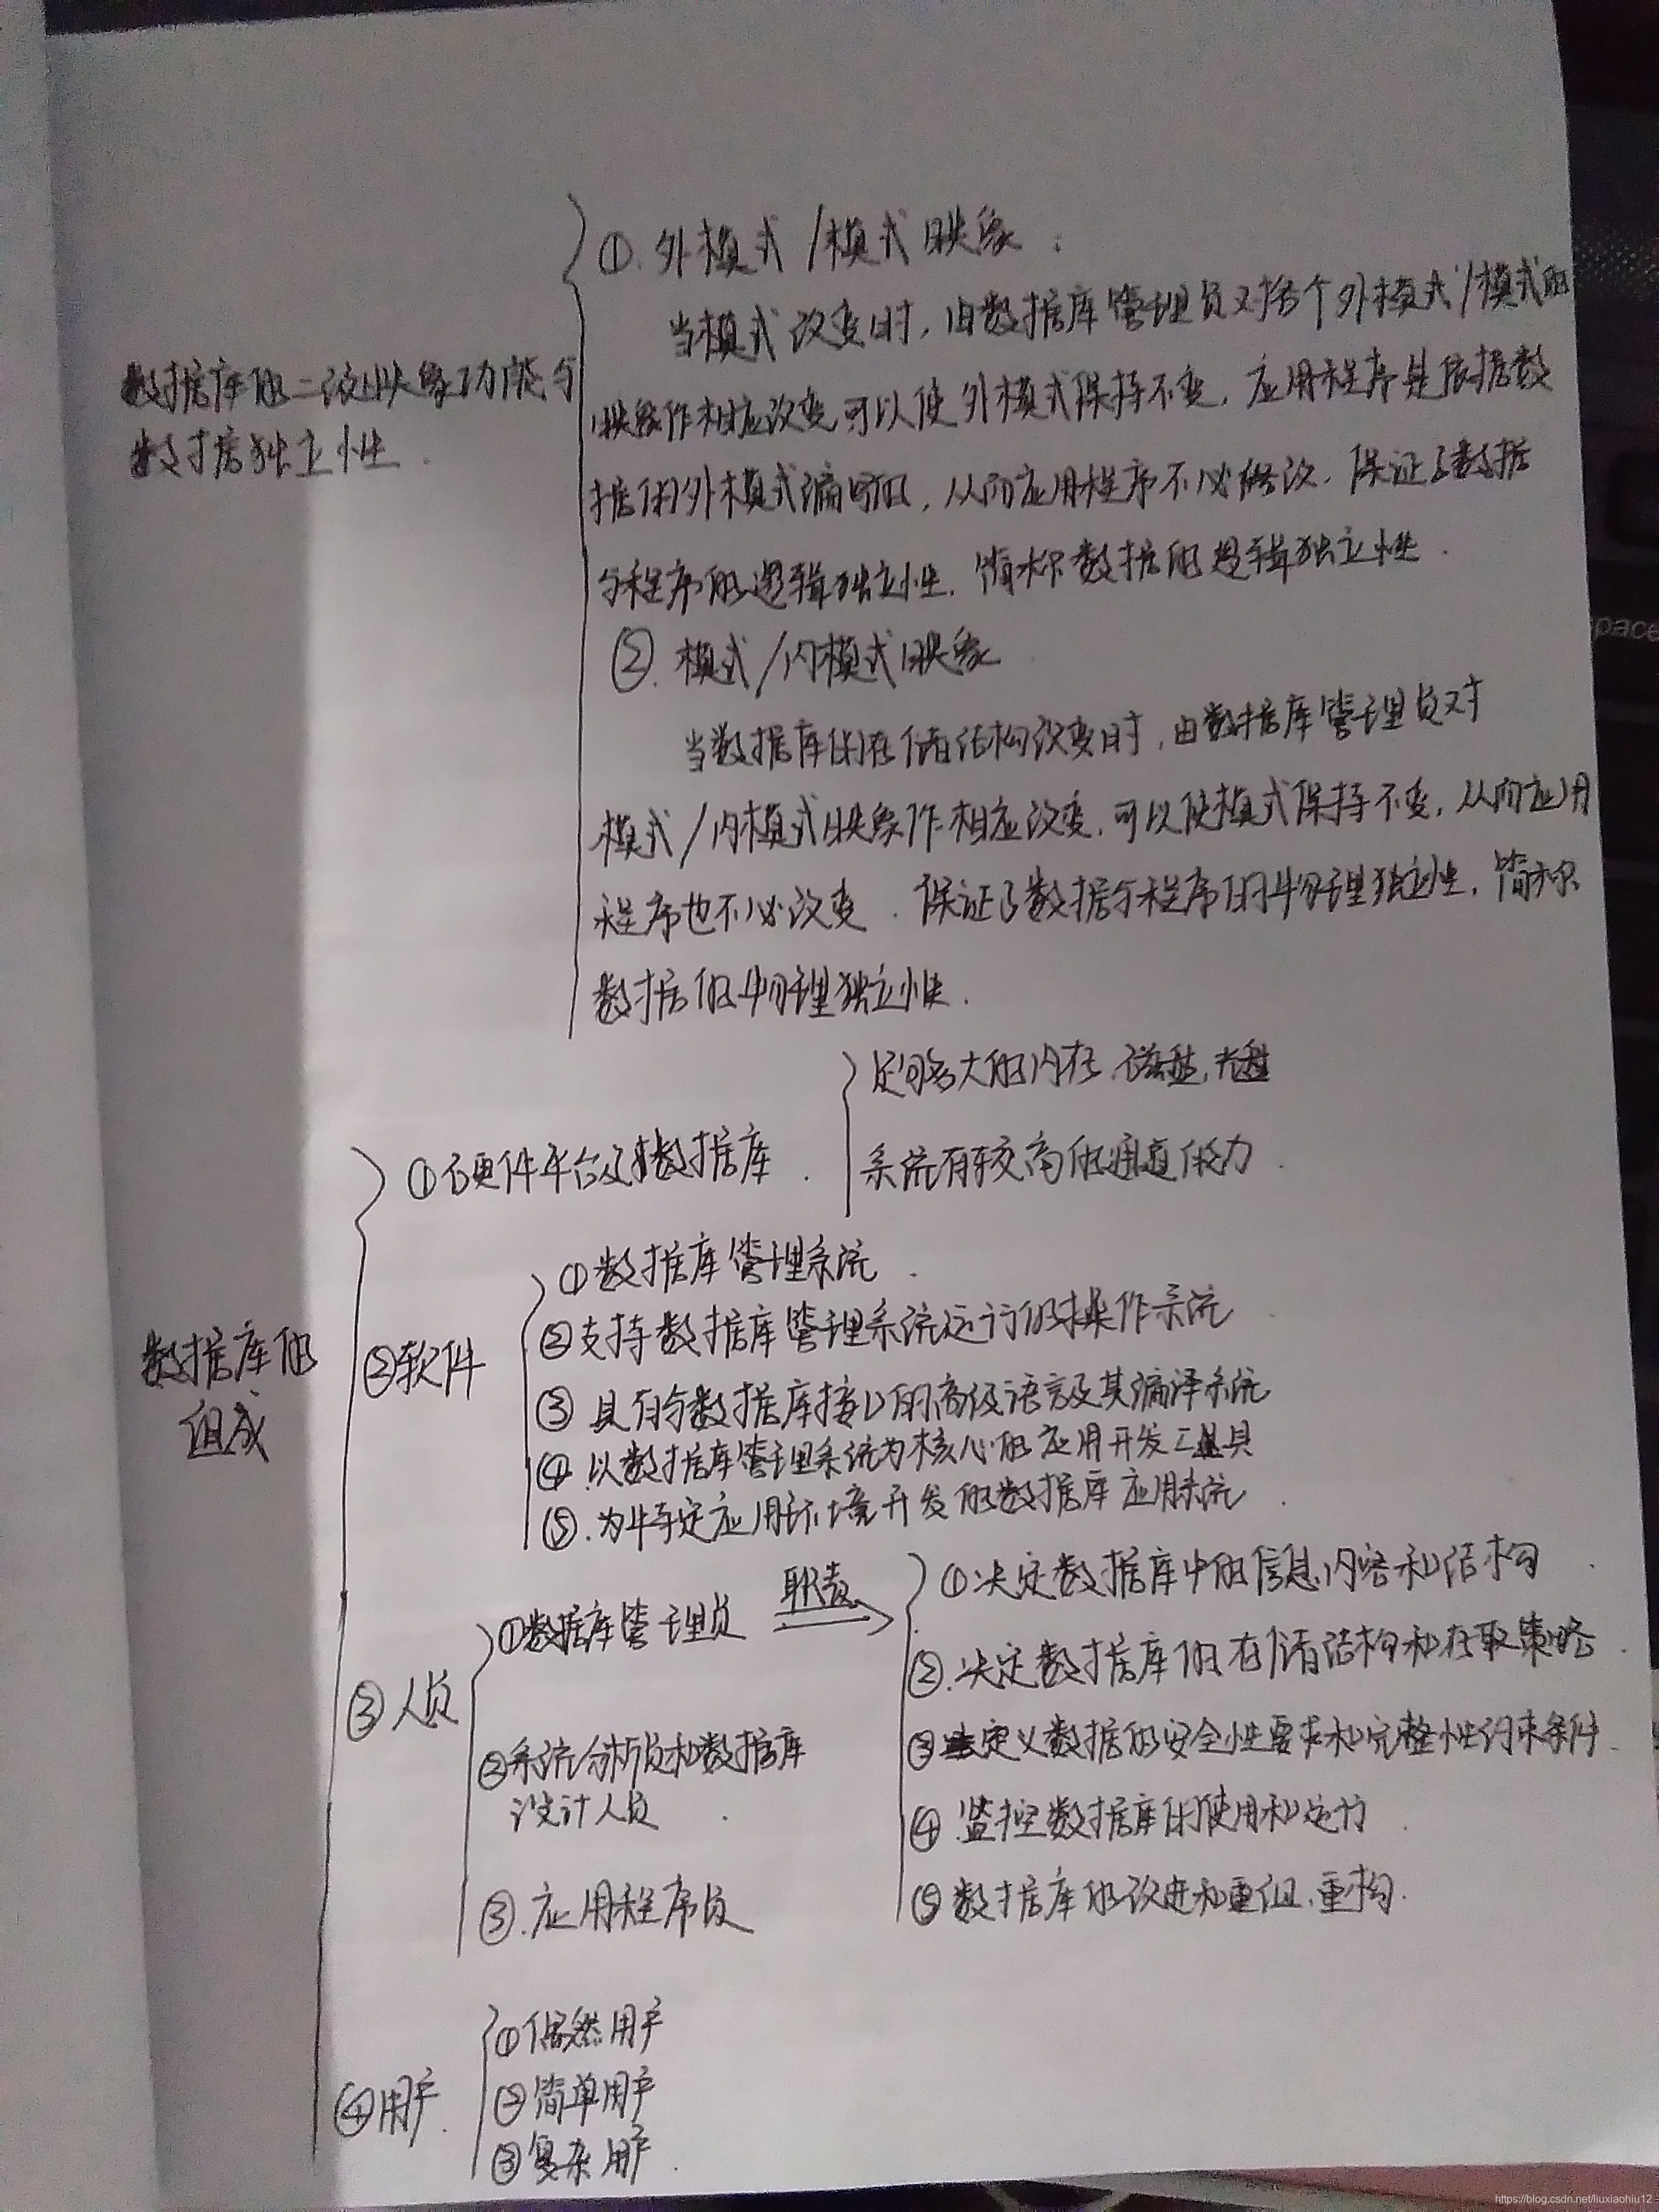 ① 外模式/模式映象:
当模式改变时,由数据库管理员对各个外模式/模式的
数据库的二级映象功能与
数据独立性.
映象作相应改变,可以使外模式保持不变.应用程序是依据数
据的外模式编写的,从而应用程序不必修改.保证了数据
与程序的逻辑独立性.简称数据的逻辑独立性.
②.模式/内模式映象
当数据库的存储结构改变时,由数据库管理员对
模式/内模式映象作相应改变,可以使模式保持不变,从而应用
程序也不必改变.保证了数据与程序的物理独立性,简称
数据的物理独立性.
足够大的内存、磁盘,光盘
①硬件平台及数据库.
系统有较高的通道能力.
数据库的
组成
②软件
①数据库管理系统.
②支持数据库管理系统运行的操作系统
③ 具有与数据库接口的高级语言及其编译系统
④.以数据库管理系统为核心的应用开发工具
⑤.为特定应用环境开发的数据库应用系统.
③人员
①数据库管理员
职责
①决定数据库中的信息内容和结构.
②.决定数据库的存储结构和存取策略.
③定义数据的安全性要求和完整性约束条件.
④.监控数据库的使用和运行
⑤数据库的改进和重组、重构.
②系统分析员和数据库
设计人员.
③.应用程序员
④用户.
①偶然用户
②简单用户
③复杂用户.
pace
https://blog.csdn.net/liuxiaohiu12